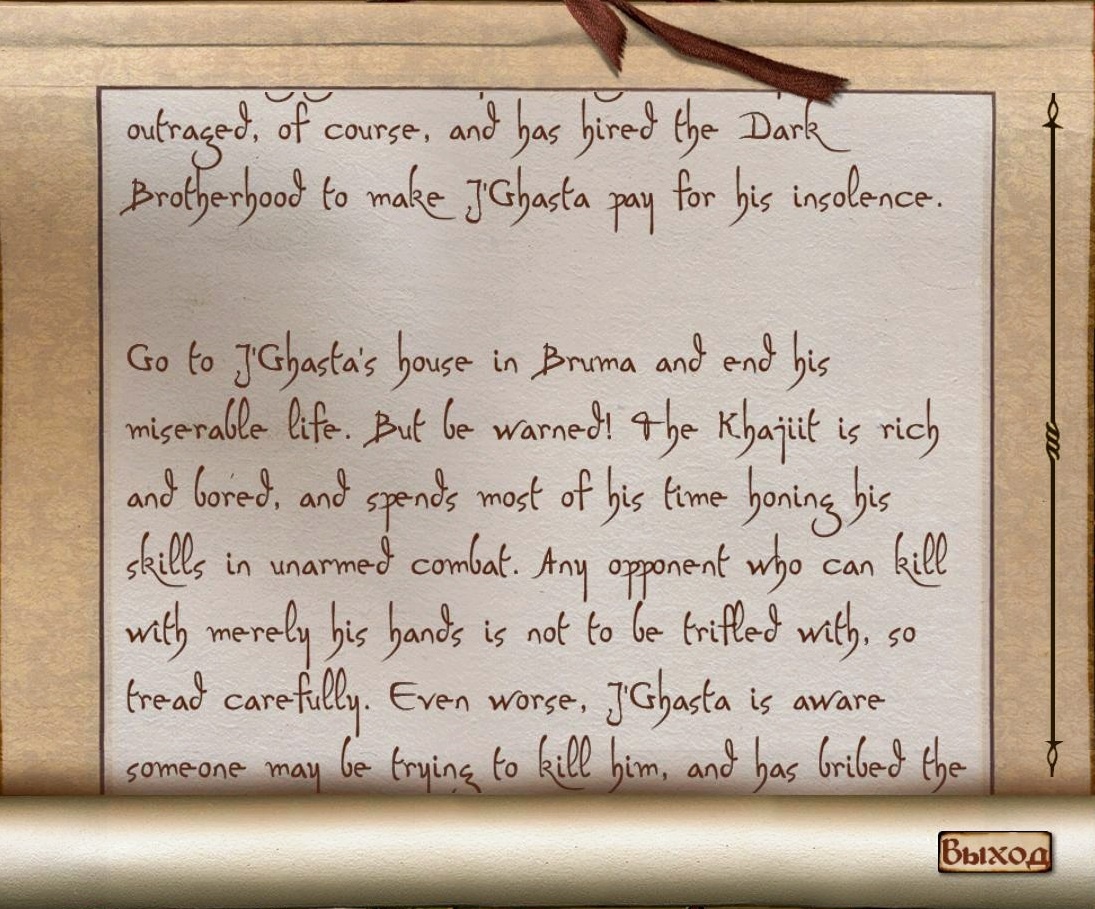 outraged, of course, and has hired the Dark
Brotherhood to make J'Ghasta pay for his insolence.
Go to J'Ghasta's house in Bruma and end his
miserable life. But be warned! The Khajiit is rich
and bored, and spends most of his time honing his
skills in unarmed combat. Any opponent who can kill
with merely his hands is not to be trifled with, so
tread carefully. Even worse, J'Ghasta is aware
someone may be trying to kill him, and has bribed the
Выход